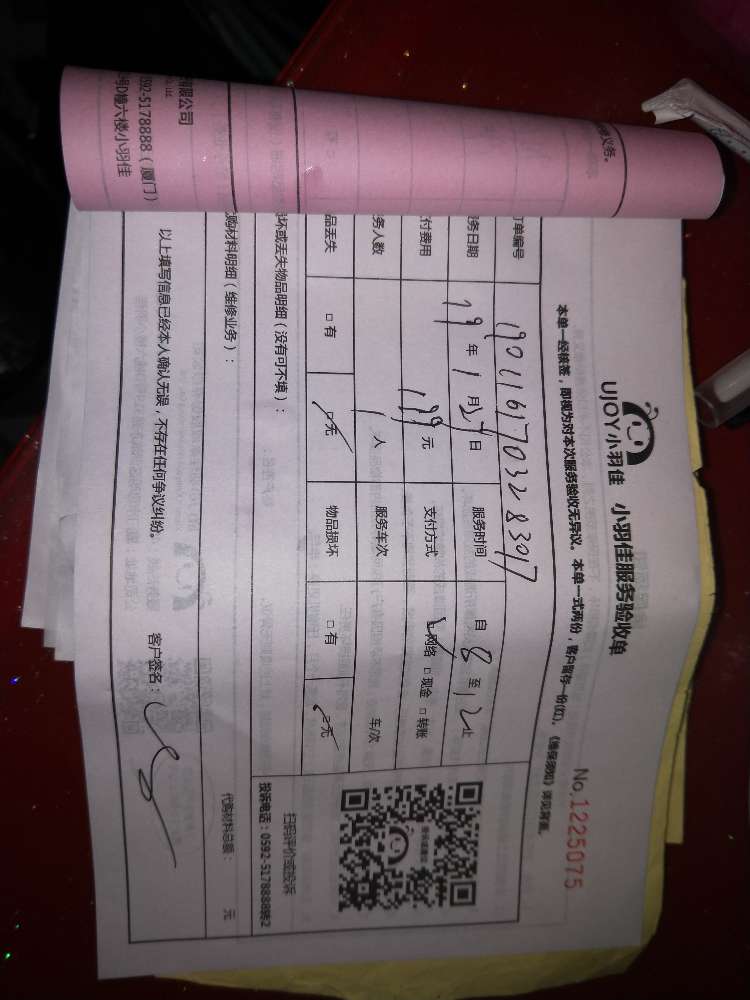 UJOY小羽佳 小羽佳服务验收单
No.1225075
本单一经核签，即视为对本次服务验收无异议。本单一式两份，客户留存一份(红)，《维保须知》详见背面。
单编号 1901161703283017
务日期 19年1月27日 服务时间 自8至12止
付费用 199元 支付方式 ☑网络 □现金 □转账
务人数 1人 服务车次 车/次
品丢失 □有 ☑无 物品损坏 □有 ☑无
扫码评价或投诉
投诉电话：0592-5178888转2
坏或丢失物品明细（没有可不填）：
购材料明细（维修业务）：
代购材料总额： 元
以上填写信息已经本人确认无误，不存在任何争议纠纷。 客户签名：
义务。
有限公司
592-5178888（厦门）
号D幢六楼小羽佳